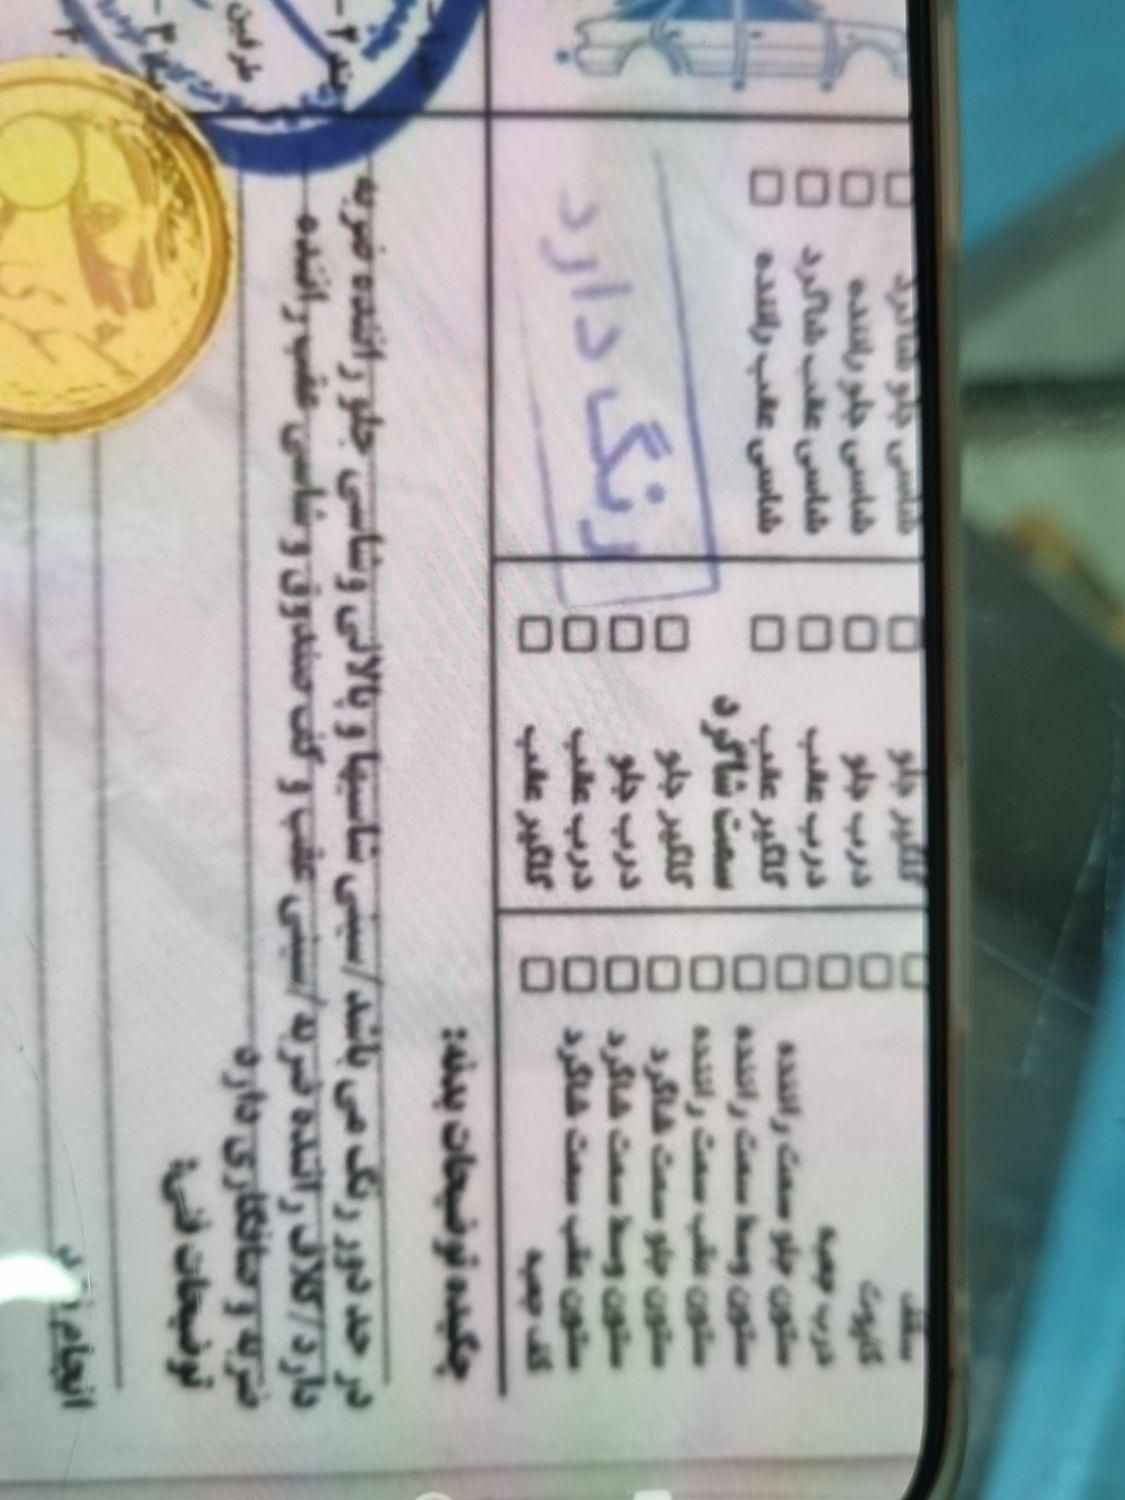 شاسی جلو شاگرد
شاسی جلو راننده
شاسی عقب شاگرد
شاسی عقب راننده
رنگ دارد
گلگیر جلو
درب جلو
درب عقب
گلگیر عقب
سمت شاگرد
گلگیر جلو
درب جلو
درب عقب
گلگیر عقب
سقف
کاپوت
درب جعبه
ستون جلو سمت راننده
ستون وسط سمت راننده
ستون عقب سمت راننده
ستون جلو سمت شاگرد
ستون وسط سمت شاگرد
ستون عقب سمت شاگرد
کف جعبه
چکیده توضیحات بدنه:
در حد دور رنگ می باشد/سینی شاسیها و بالائی وشاسی جلو راننده ضربه
دارد/کلاف راننده ضربه/سینی عقب و کف صندوق و شاسی عقب راننده
ضربه و صافکاری دارد
توضیحات فنی:
انجام